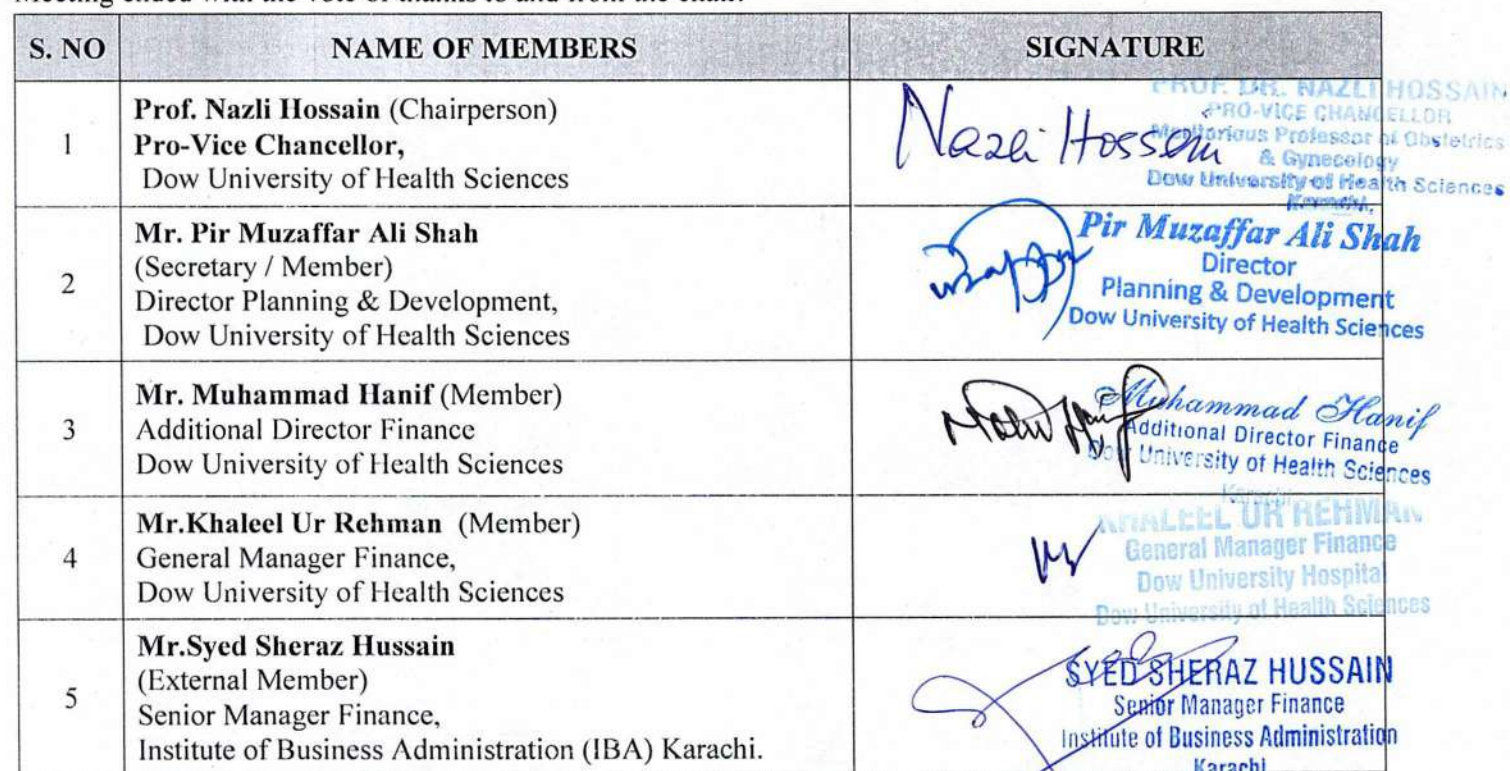 Meeting ended with the vote of thanks to and from the chair.
S. NO NAME OF MEMBERS SIGNATURE
1
Prof. Nazli Hossain (Chairperson)
Pro-Vice Chancellor,
Dow University of Health Sciences
Nazli Hossain
PROF. DR. NAZLI HOSSAIN
PRO-VICE CHANCELLOR
Meritorious Professor of Obstetrics
& Gynecology
Dow University of Health Sciences
Karachi.
2
Mr. Pir Muzaffar Ali Shah
(Secretary / Member)
Director Planning & Development,
Dow University of Health Sciences
Pir Muzaffar Ali Shah
Director
Planning & Development
Dow University of Health Sciences
3
Mr. Muhammad Hanif (Member)
Additional Director Finance
Dow University of Health Sciences
Muhammad Hanif
Additional Director Finance
Dow University of Health Sciences
Karachi
4
Mr.Khaleel Ur Rehman (Member)
General Manager Finance,
Dow University of Health Sciences
KHALEEL UR REHMAN
General Manager Finance
Dow University Hospital
Dow University of Health Sciences
5
Mr.Syed Sheraz Hussain
(External Member)
Senior Manager Finance,
Institute of Business Administration (IBA) Karachi.
SYED SHERAZ HUSSAIN
Senior Manager Finance
Institute of Business Administration
Karachi